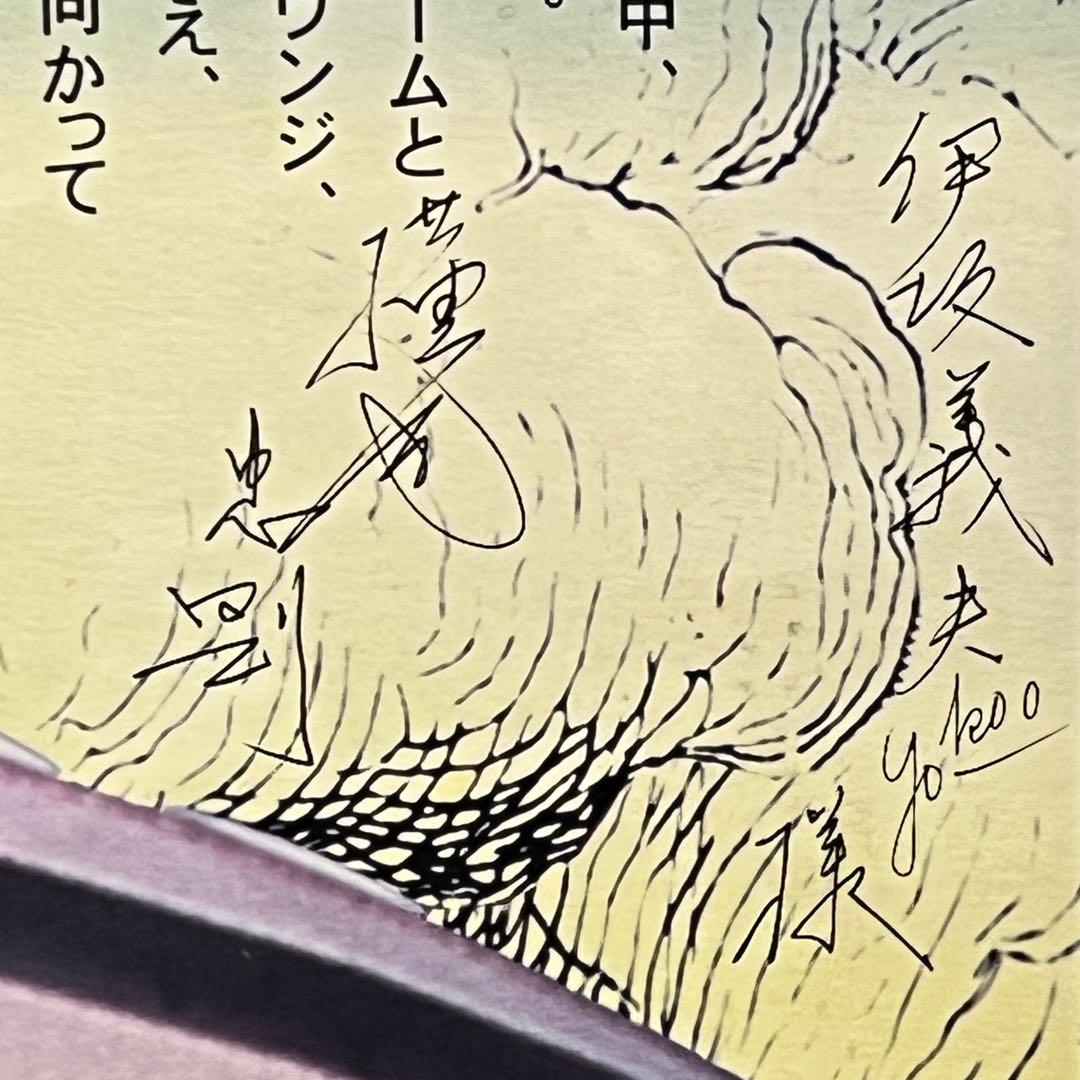 中、
。
ームと
ンジ、
え、
向かって
伊坂義夫
yokoo
様
横尾
忠則